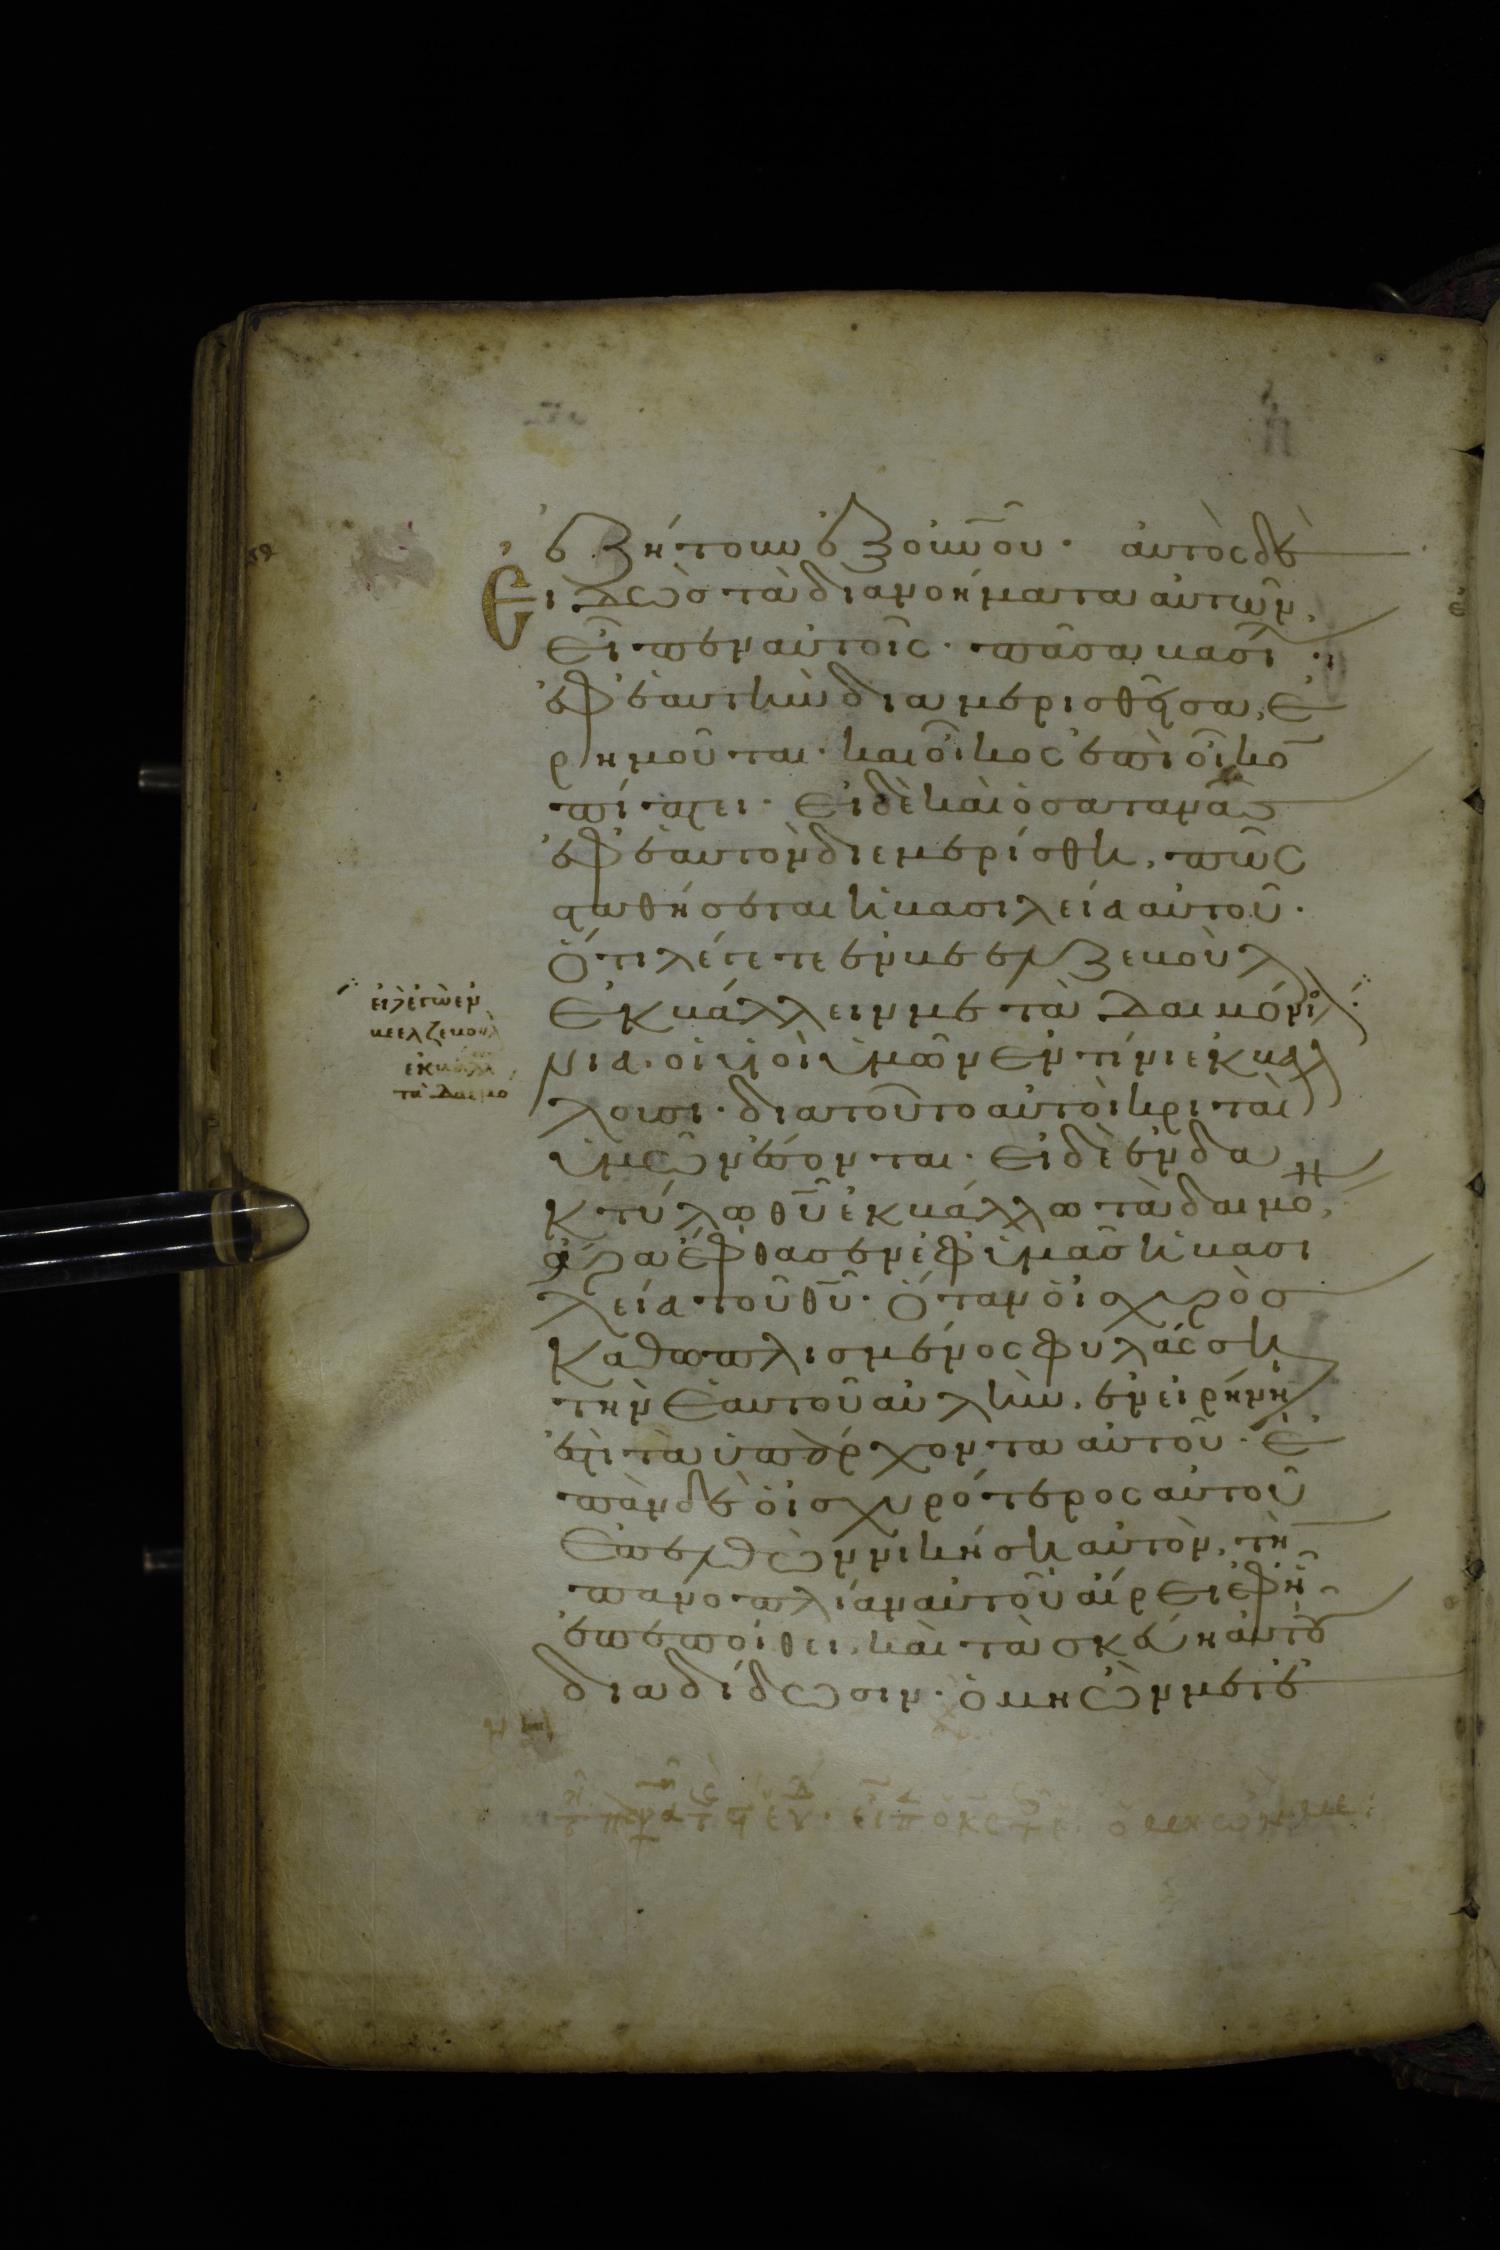 ἐζήτουν ἐξ οὐνοῦ· αὐτὸς δὲ
Εἰδὼς τὰ διανοήματα αὐτῶν,
εἶπεν αὐτοῖς· πᾶσα βασι
ἐφ' ἑαυτὴν διαμερισθεῖσα, ἐ
ρημοῦται· καὶ οἶκος ἐπὶ οἶκο
πίπτει· εἰ δὲ καὶ ὁ σατανᾶς
ἐφ' ἑαυτὸν διεμερίσθη, πῶς
σταθήσεται ἡ βασιλεία αὐτοῦ·
ὅτι λέγετε ἐν βεελζεβοὺλ
εἰ ἐγὼ ἐν
βεελζεβουλ
ἐκβάλλ
τὰ δαιμο
ἐκβάλλειν με τὰ δαιμόνι
νια. οἱ υἱοὶ ὑμῶν ἐν τίνι ἐκβαλ
λουσι· διατοῦτο αὐτοὶ κριταὶ
ὑμῶν ἔσονται· εἰ δὲ ἐν δα
κτύλω θῦ ἐκβάλλω τὰ δαιμό,
ἄρα ἔφθασεν ἐφ' ὑμᾶς ἡ βασι
λεία τοῦ θῦ· ὅταν ὁ ἰσχυρὸς
καθωπλισμένος φυλάσση
τὴν ἑαυτοῦ αὐλὴν, ἐν εἰρήνη
ἐστὶ τὰ ὑπάρχοντα αὐτοῦ· ἐ
πὰν δὲ ὁ ἰσχυρότερος αὐτοῦ
ἐπελθὼν νικήση αὐτὸν, τὴ
πανοπλίαν αὐτοῦ αἴρει ἐφ' ἧ
ἐπεποίθει, καὶ τὰ σκεύη αὐτοῦ
διαδίδωσιν· ὁ μὴ ὢν με